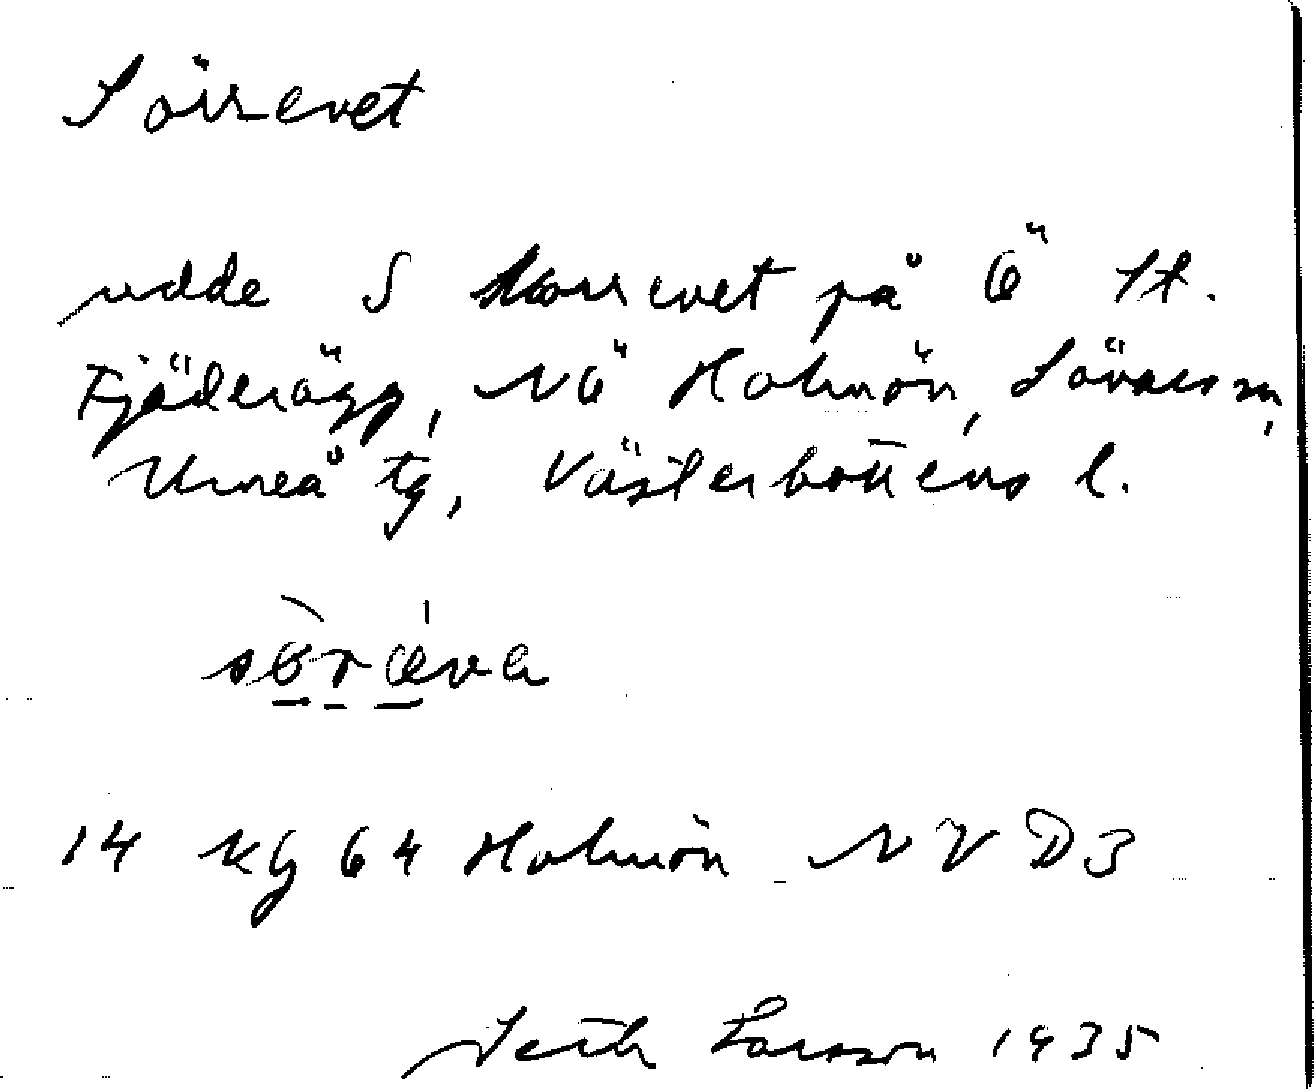 Sörrevet
udde S Norrrevet på Ö St.
Fjäderägg, NÖ Holmön, Sävars sn,
Umeå tg, Västerbottens l.
söræva
14 Kg 64 Holmön NV D3
Seth Larsson 1935